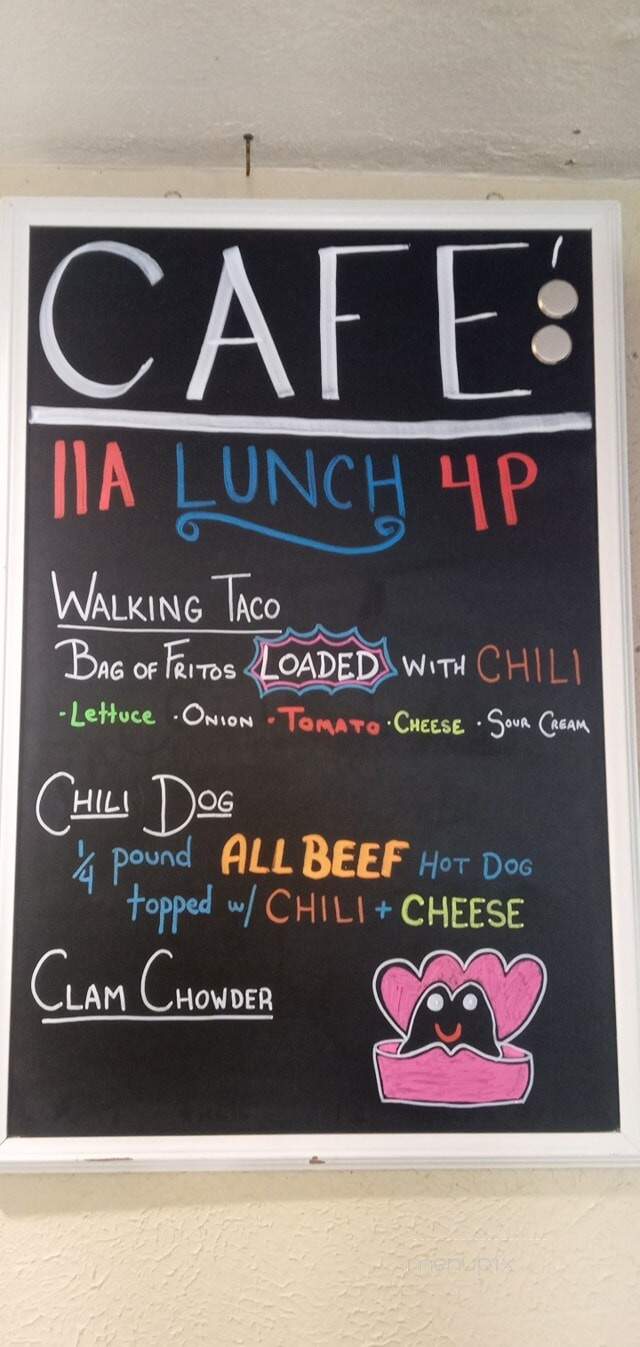 CAFE'
11A LUNCH 4P
WALKING TACO
BAG OF FRITOS LOADED WITH CHILI
·Lettuce ·ONION ·TOMATO ·CHEESE ·SOUR CREAM
CHILI DOG
1/4 pound ALL BEEF HOT DOG
topped w/ CHILI + CHEESE
CLAM CHOWDER
menupix